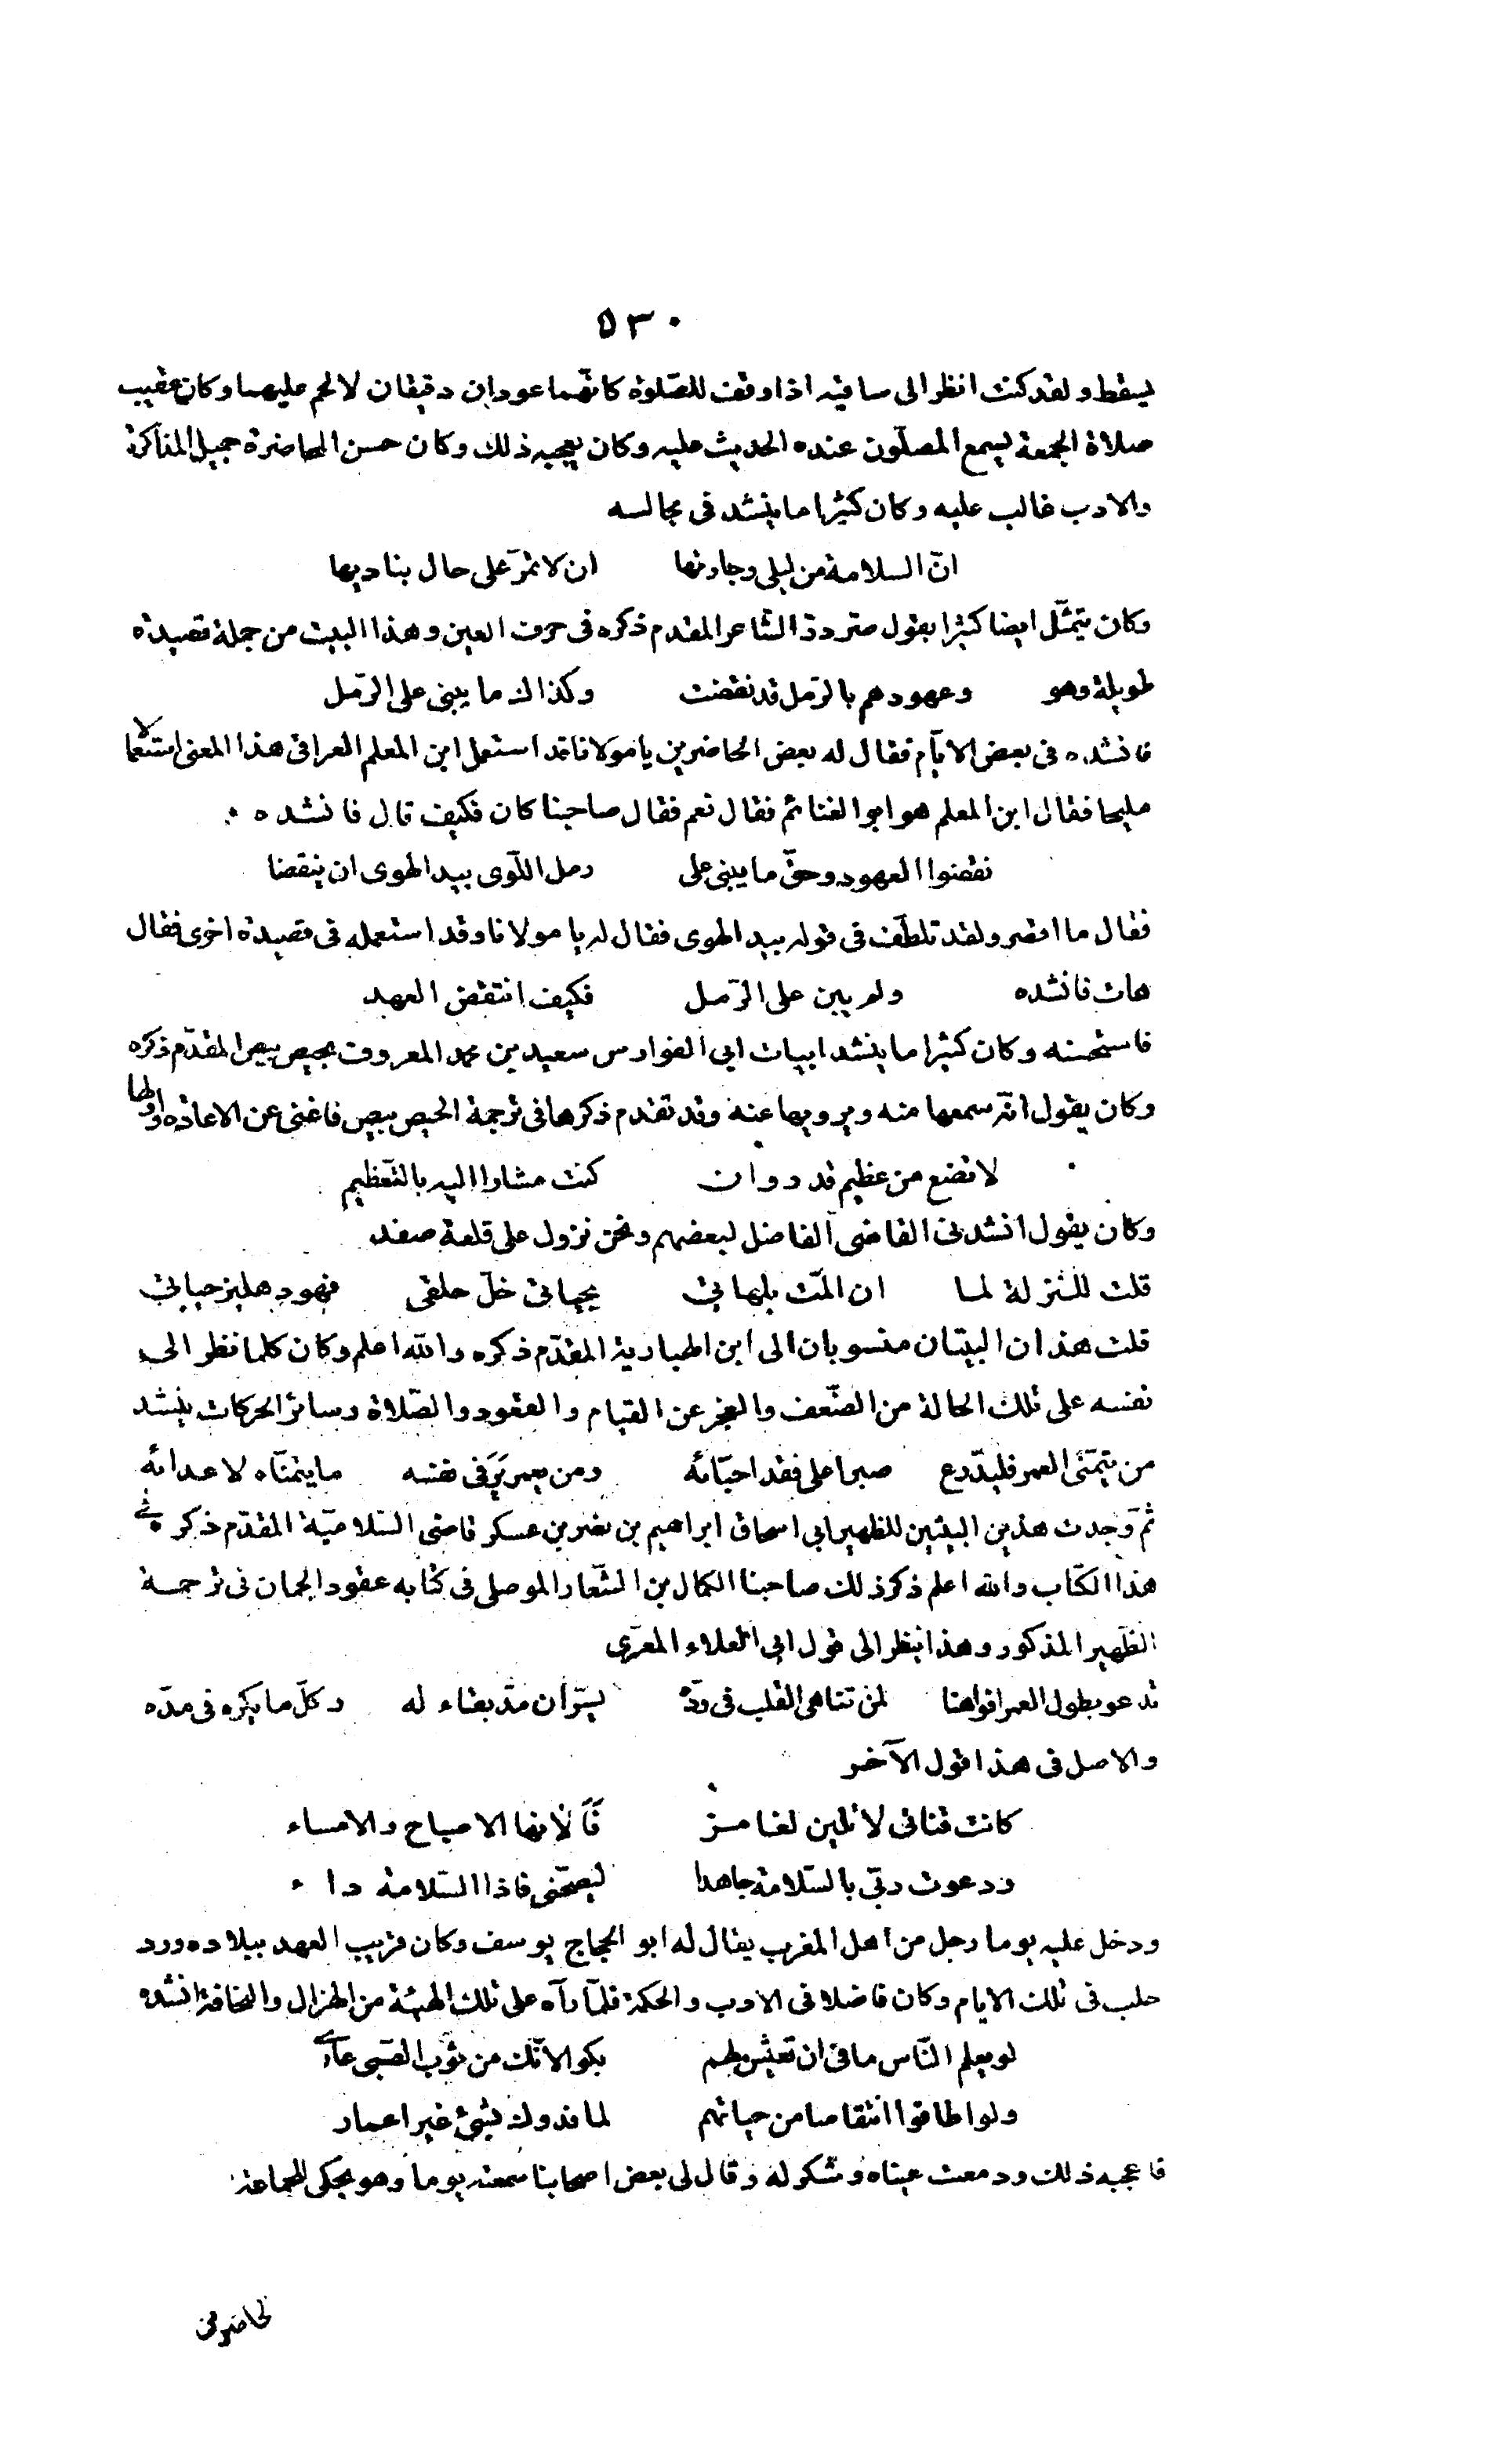 ٥٣٠
يسقط ولقد كنت انظر الى ساقيه اذا وقف للصّلوة كانّهما عودان دقيقان لا لحم عليهما وكان عقيب
صلاة الجمعة يسمع المصلّون عنده الحديث عليه وكان يعجبه ذلك وكان حسن المحاضرة جميل المذاكرة
والادب غالب عليه وكان كثيرا ما ينشد فى مجالسه
انّ السلامة من ليلى وجارتها ان لا تمرّ على حال بناديها
وكان يتمثّل ايضا كثيرا بقول صردرّ الشاعر المقدم ذكره فى حرف العين وهذا البيت من جملة قصيدة
طويلة وهو وعهودهم بالرّمل قد نقضت وكذاك ما يبنى على الرّمل
فانشده فى بعض الايّام فقال له بعض الحاضرين يا مولانا قد استعمل ابن المعلم العراقى هذا المعنى استعمالا
مليحا فقال ابن المعلم هو ابو الغنائم فقال نعم فقال صاحبنا كان فكيف قال فانشده
نقضوا العهود وحقّ ما يبنى على رمل اللّوى بيد الهوى ان ينقضا
فقال ما اقصر ولقد تلطّف فى قوله بيد الهوى فقال له يا مولانا وقد استعمله فى قصيدة اخرى فقال
هات فانشده ولم يبن على الرّمل فكيف انتقض العهد
فاستحسنه وكان كثيرا ما ينشد ابيات ابى الفوارس سعيد بن محمد المعروف بحيص بيص المقدّم ذكره
وكان يقول انّه سمعها منه ويرويها عنه وقد تقدم ذكرها فى ترجمة الحيص بيص فاغنى عن الاعادة واولها
لا تضع من عظيم قدر وان كنت مشارا اليه بالتّعظيم
وكان يقول انشدنى القاضى الفاضل لبعضهم ونحن نزول على قلعة صفد
قلت للنزلة لما ان المّت بلهاتى بحياتى خلّ حلقى فهو دهليز حياتى
قلت هذان البيتان منسوبان الى ابن الهبارية المقدّم ذكره والله اعلم وكان كلما نظر الى
نفسه على تلك الحالة من الضّعف والعجز عن القيام والعقود والصّلاة وسائر الحركات ينشد
من يتمنّى العمر فليدّرع صبرا على فقد احبّائه ومن يعمر يَرَ فى نفسه ما يتمنّاه لاعدائه
ثم وجدت هذين البيتين للظهير ابى اسحاق ابراهيم بن نصر بن عسكر قاضى السّلاميّة المقدّم ذكره فى
هذا الكتاب والله اعلم ذكر ذلك صاحبنا الكمال بن الشّعار الموصلى فى كتابه عقود الجمان فى ترجمة
الظّهير المذكور وهذا ينظر الى قول ابى العلاء المعرّى
تدعو بطول العمر افواهنا لمن تناهى القلب فى ودّه يسرّ ان مدّ بقاء له وكلّ ما يكره فى مدّه
والاصل فى هذا قول الآخر
كانت قناتى لا تلين لغامز فَاَلانها الاصباح والامساء
ودعوت ربّى بالسّلامة جاهدا ليصحّنى فاذا السّلامة داء
ودخل عليه يوما رجل من اهل المغرب يقال له ابو الحجاج يوسف وكان قريب العهد ببلاده ورد
حلب فى تلك الايام وكان فاضلا فى الادب والحكمة فلمّا رآه على تلك الهيئة من الهزال والنحافة انشده
لو يعلم النّاس ما فى ان تعيش لهم بكو الانّك من ثوب الصّبى عارى
ولو اطاقوا انتقاصا من حياتهم لما فدوك بشئ غير اعمار
فاعجبه ذلك ودمعت عيناه وشكر له وقال لى بعض اصحابنا سمعته يوما وهو يحكى للجماعة